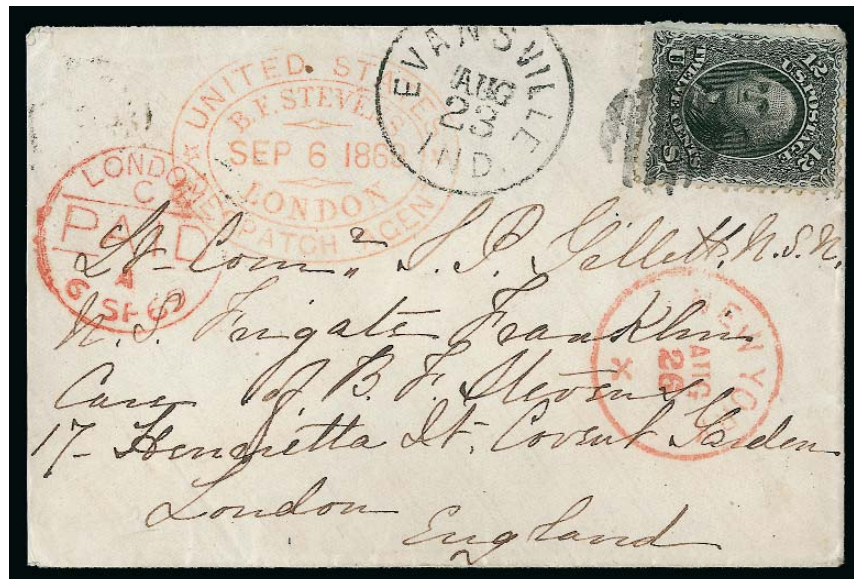 EVANSVILLE
AUG
23
IND.
12 U.S. POSTAGE 12
TWELVE CENTS
U S
UNITED STATES
B.F. STEVENS
SEP 6 1869
LONDON
DESPATCH AGENT
LONDON
C
PAID
A
6 SP 69
NEW YORK
AUG
26
Lt. Comr. S. P. Gillett. U.S.N.
U.S. Frigate Franklin
Care of B. F. Stevens
17- Henrietta St. Covent Garden
London
England